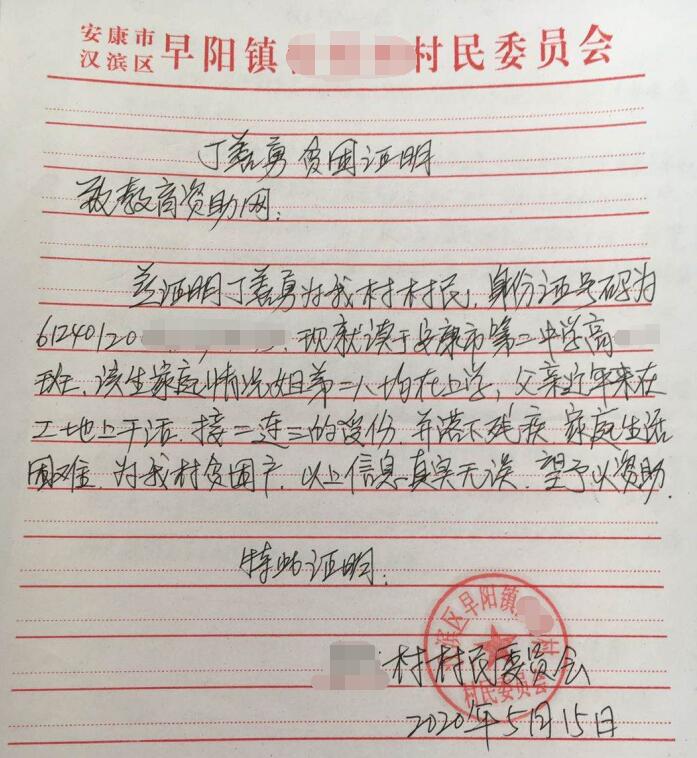 安康市
汉滨区 早阳镇 村民委员会
丁善勇贫困证明
致教育资助网:
兹证明丁善勇为我村村民,身份证号码为
61240120 . 现就读于安康市第二中学高
班. 该生家庭情况姐弟二人均在上学, 父亲近年来在
工地上干活. 接二连三的受伤. 并落下残疾. 家庭生活
困难. 为我村贫困户. 以上信息真实无误. 望予以资助.
特此证明.
汉滨区早阳镇 村
村民委员会
村村民委员会
2020年5月15日